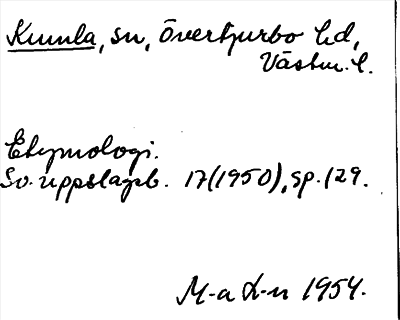 Kumla, sn, Övertjurbo hd,
Västm. l.
Etymologi.
Sv. uppslagsb. 17(1950), sp. 129.
M-a L-n 1954.